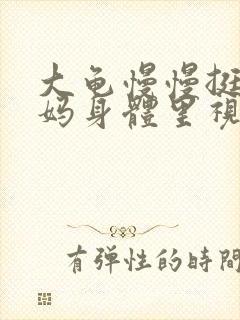 大龟慢慢挺
妈身體里視
有弹性的時間